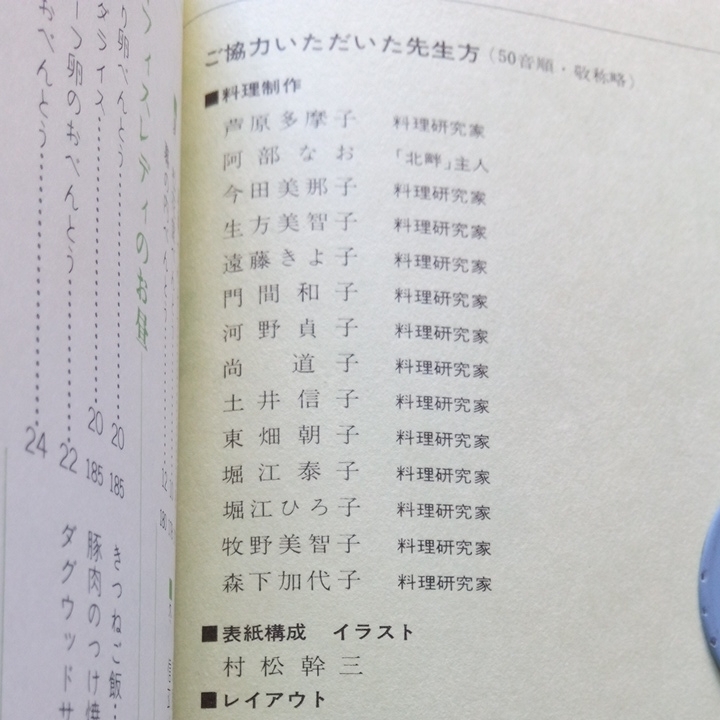 ご協力いただいた先生方（50音順・敬称略）
■料理制作
芦原多摩子 料理研究家
阿部なお 「北畔」主人
今田美那子 料理研究家
生方美智子 料理研究家
遠藤きよ子 料理研究家
門間和子 料理研究家
河野貞子 料理研究家
尚道子 料理研究家
土井信子 料理研究家
東畑朝子 料理研究家
堀江泰子 料理研究家
堀江ひろ子 料理研究家
牧野美智子 料理研究家
森下加代子 料理研究家
■表紙構成 イラスト
村松幹三
■レイアウト
ィスレディのお昼
り卵べんとう 20 185
ダライス 20 185
卵のおべんとう 22
おべんとう 24
きつねご飯
豚肉のつけ焼
ダグウッドサ